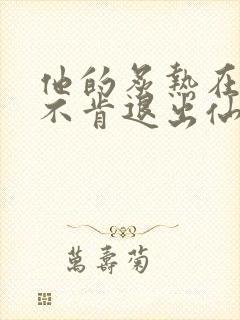 他的炙熱在
不肯退出仙
萬壽菊